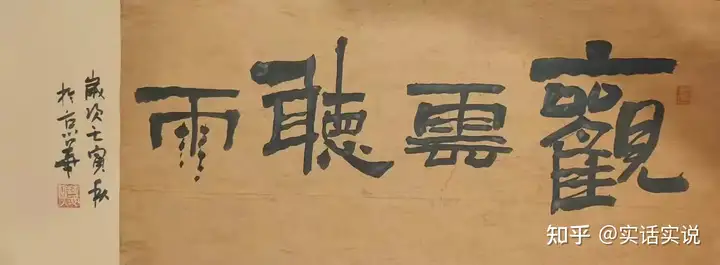 觀雲聽雨
歲次壬寅秋
於京華
知乎 @实话实说